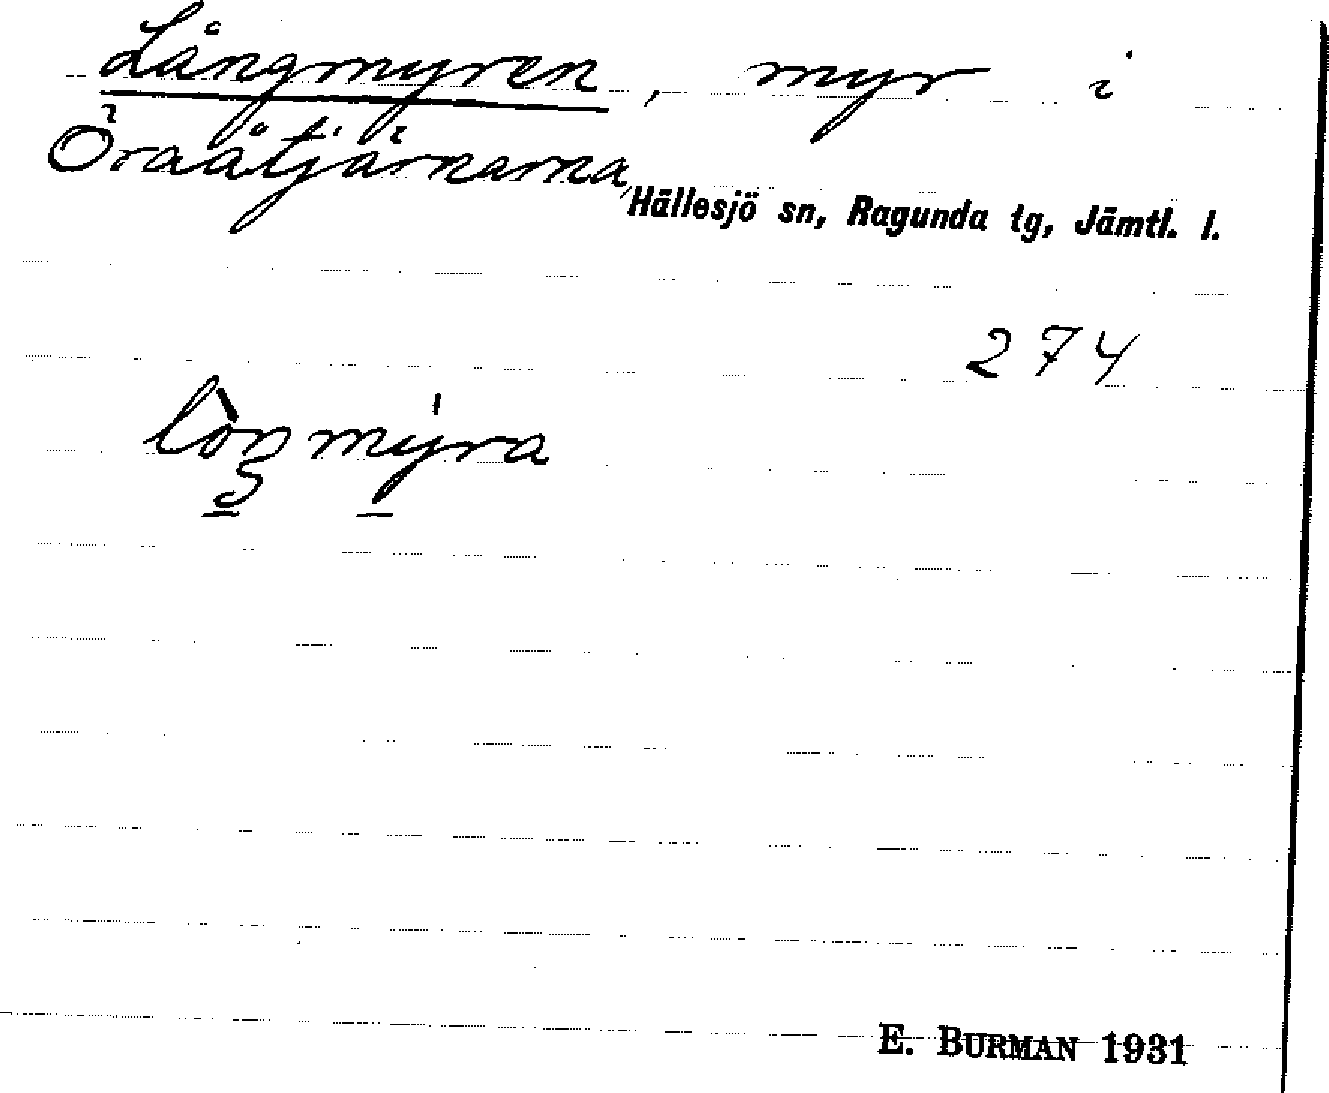 Långmyren, myr i
Öraåtjärnarna,
Hällesjö sn, Ragunda tg, Jämtl. l.
274
lòŋmýra
E. BURMAN 1931